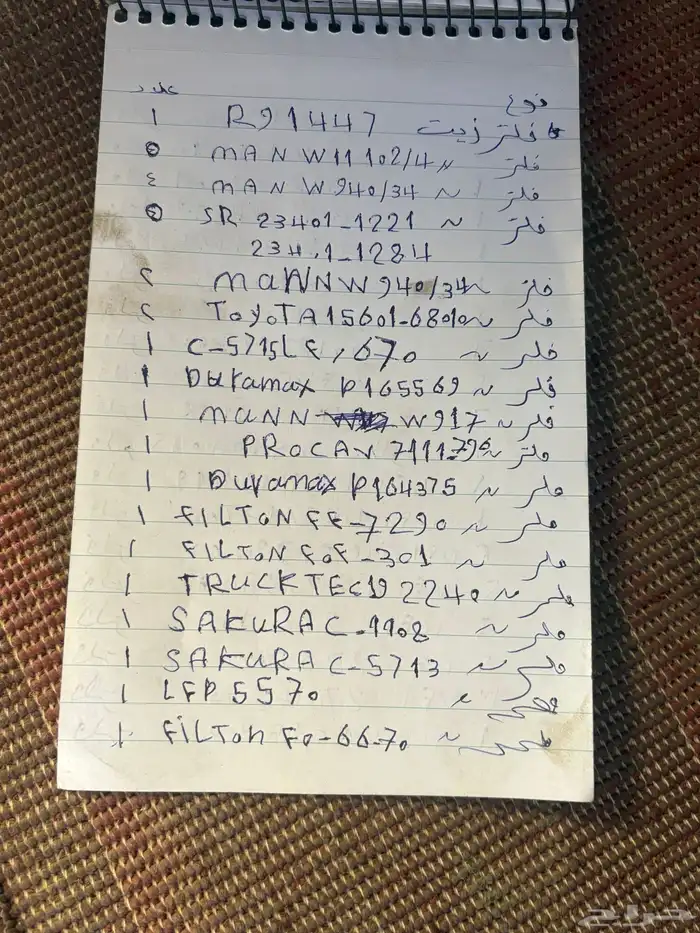 نوع عدد
فلتر زيت R91447 ١
فلتر ~ MAN W11102/4 ٥
فلتر ~ MAN W940/34 ٤
فلتر ~ SR 23401_1221
234.1_1284
فلتر ~ MaNN W940/34 ٢
فلتر ~ ToyoTA 15601-6801 ٢
فلتر ~ C-5715 ١
فلتر ~ Duramax P165569 ١
فلتر ~ MaNN W917 ١
فلتر ~ PROCAV ١
فلتر ~ Duramax P164375 ١
فلتر ~ FILTON FF-7290 ١
فلتر ~ FILTON FoF-301 ١
فلتر ~ TRUCKTEC 19 2240 ١
فلتر ~ SAKURA C-1108 ١
فلتر ~ SAKURA C-5713 ١
فلتر ~ LFP 5570 ١
فلتر ~ FILTON Fo-66-70 ١
حراج